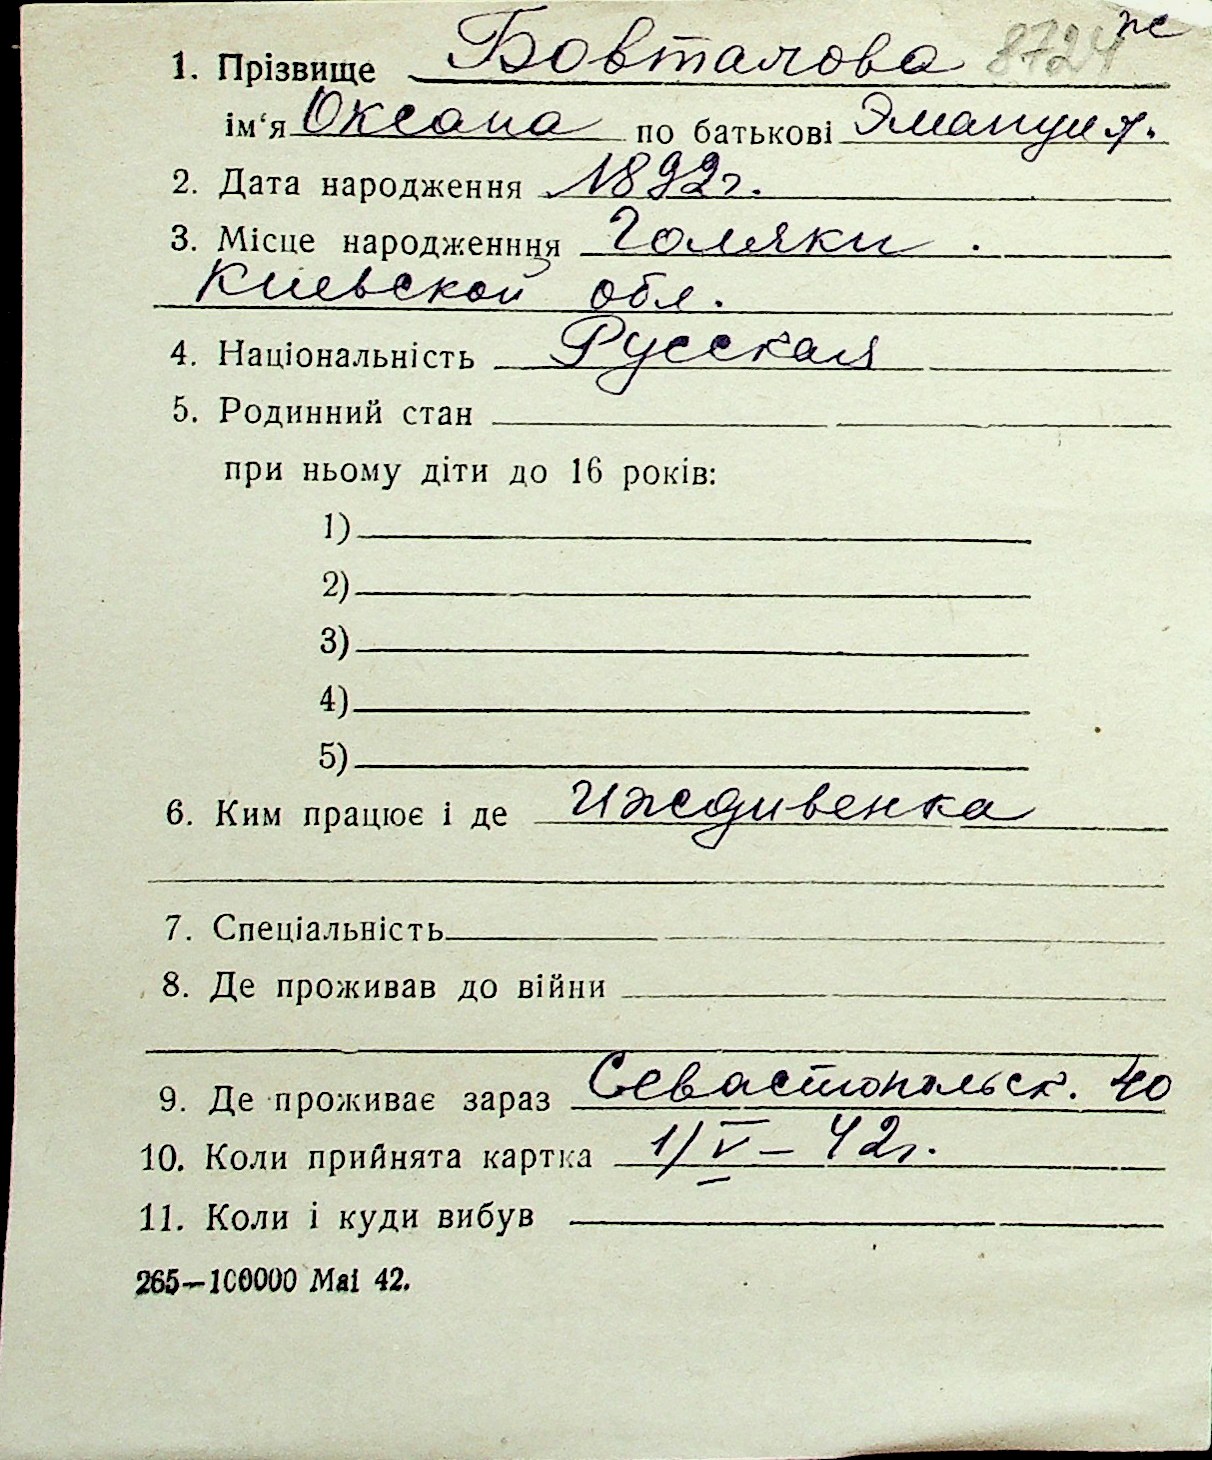 ж
1. Прізвище Бовталова 8724
ім‘я Оксана по батькові Эмануил.
2. Дата народження 1892г.
3. Місце народженння Голяки.
Киевской обл.
4. Національність Русская
5. Родинний стан
при ньому діти до 16 років:
1)
2)
3)
4)
5)
6. Ким працює і де Иждивенка
7. Спеціальність
8. Де проживав до війни
9. Де проживає зараз Севастопольск. 40
10. Коли прийнята картка 1/V – 42г.
11. Коли і куди вибув
265—100000 Mai 42.